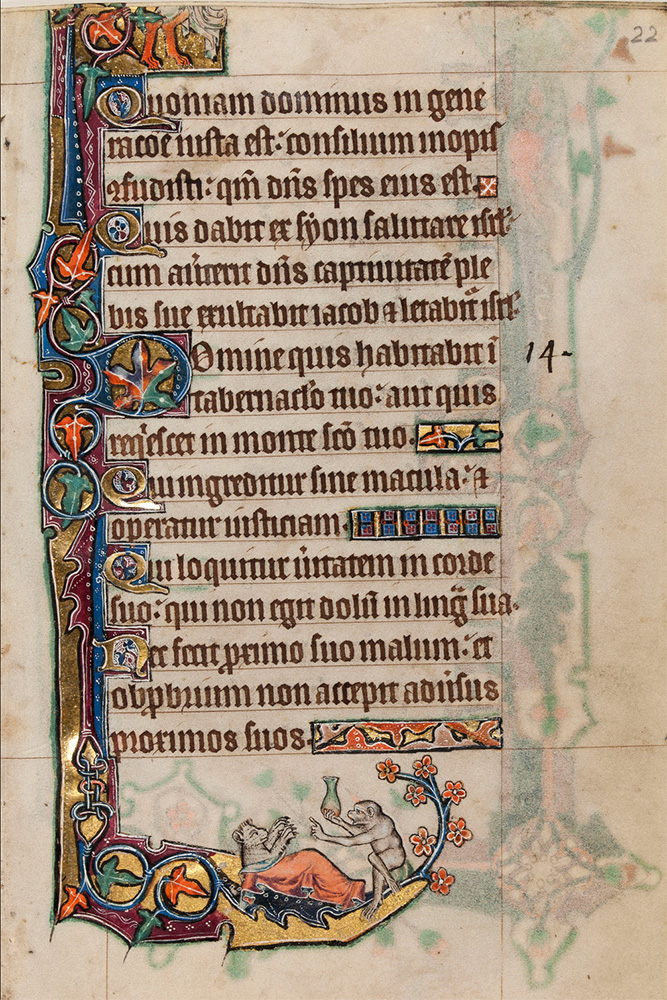 22
Quoniam dominus in gene
racoē iusta est: consilium inopis
ɔfudisti: qm̄ dn̄s spes eius est.
Quis dabit ex syon salutare isrl̄:
cum auͥterit dn̄s captiuitatē ple
bis sue exultabit iacob ⁊ letabit̄ isrl̄.
Domine quis habitabit ī
14-
tabernac̄lo tuo: aut quis
reqͥescet in monte sc̄o tuo.
Qui ingreditur sine macula: ⁊
operatur iusticiam.
Qui loquitur uͥtatem in corde
suo: qui non egit dolū in ling̃ sua.
Nec fecit ꝓximo suo malum: et
obꝓbrium non accepit aduͥsus
proximos suos.